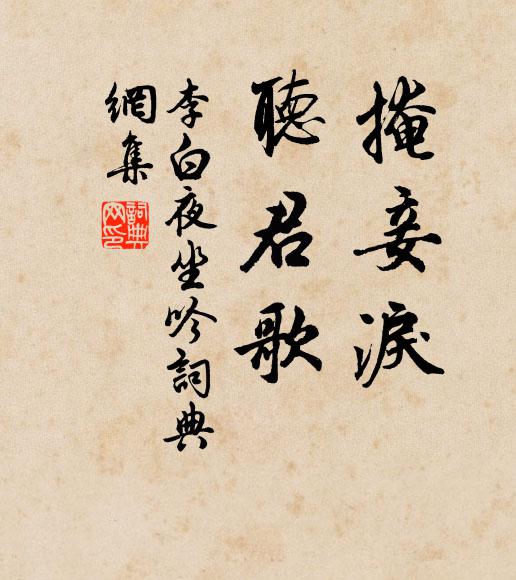 掩妾淚
聽君歌
李白夜坐吟詞典
網集
詞典
網印